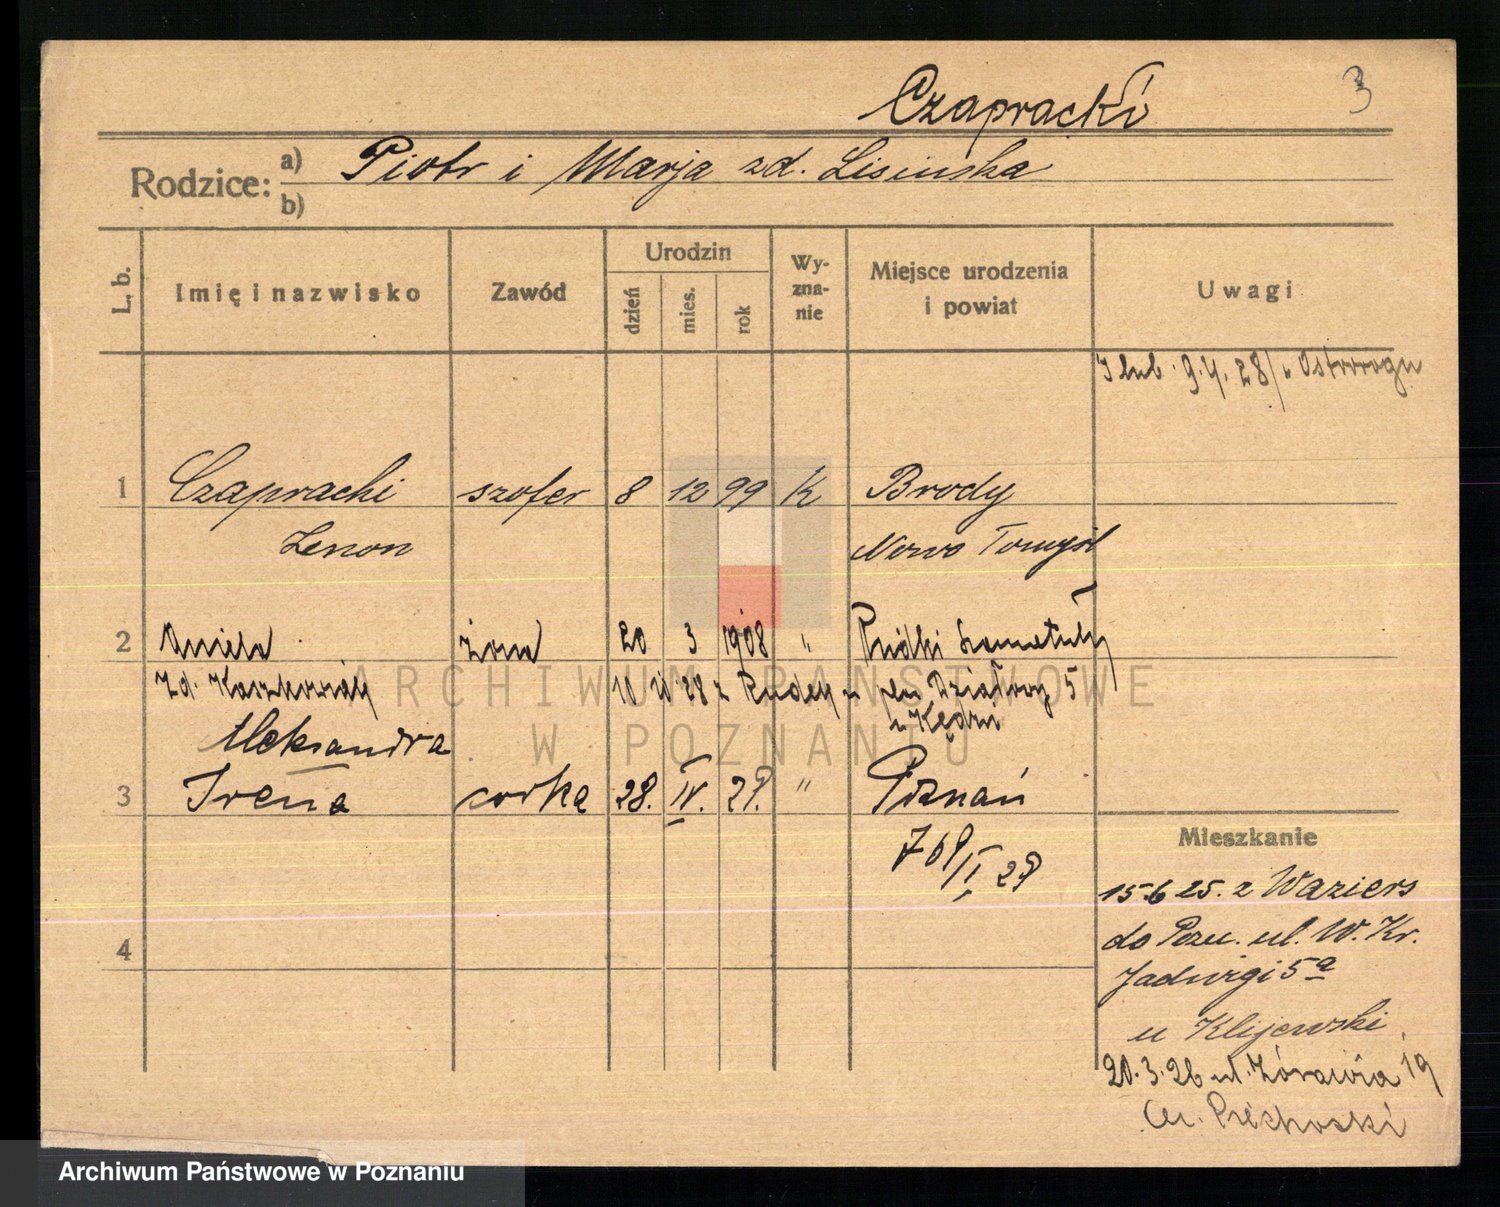 Czapracki
3
Rodzice: a) Piotr i Marja zd. Lisińska
b)
L. b. Imię i nazwisko Zawód Urodzin dzień mies. rok Wyznanie Miejsce urodzenia i powiat Uwagi
ślub 9.4.28 w Ostrorogu
1 Czapracki szofer 8 12 99 K Brody
Zenon Nowo Tomyśl
2 Aniela żona 20 3 1908 " Rudki Szamotuły
zd. Kaczkowiak 10 28 z 5
Aleksandra
3 Irena corka 28. IV. 29. " Poznań
4
Mieszkanie
15.6 25. z Waziers
do Pozn. ul. W. Kr.
Jadwigi 5a
u Klijewski
20.3.26 ul. Żórawia 19
ARCHIWUM PAŃSTWOWE
W POZNANIU
Archiwum Państwowe w Poznaniu